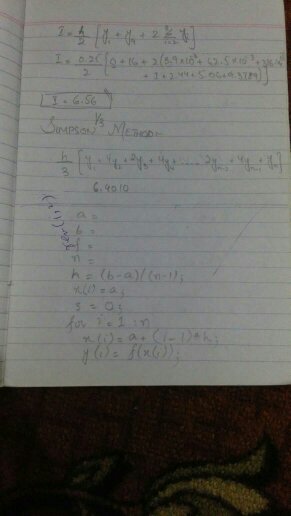 I = h/2 [y₁ + y₉ + 2 Σ yᵢ]
I = 0.25/2 [0 + 16 + 2(3.9×10⁻³ + 62.5×10⁻³ +
+ 1 + 2.44 + 5.06 + 9.3789)]
I = 6.56
SIMPSON 1/3 METHOD
h/3 [y₁ + 4y₂ + 2y₃ + 4y₄ + ..... 2yₙ₋₂ + 4yₙ₋₁ + yₙ]
6.4010
a =
b =
f =
n =
h = (b-a)/(n-1);
x(1) = a;
s = 0;
for i = 1:n
x(i) = a + (i-1)*h;
y(i) = f(x(i));